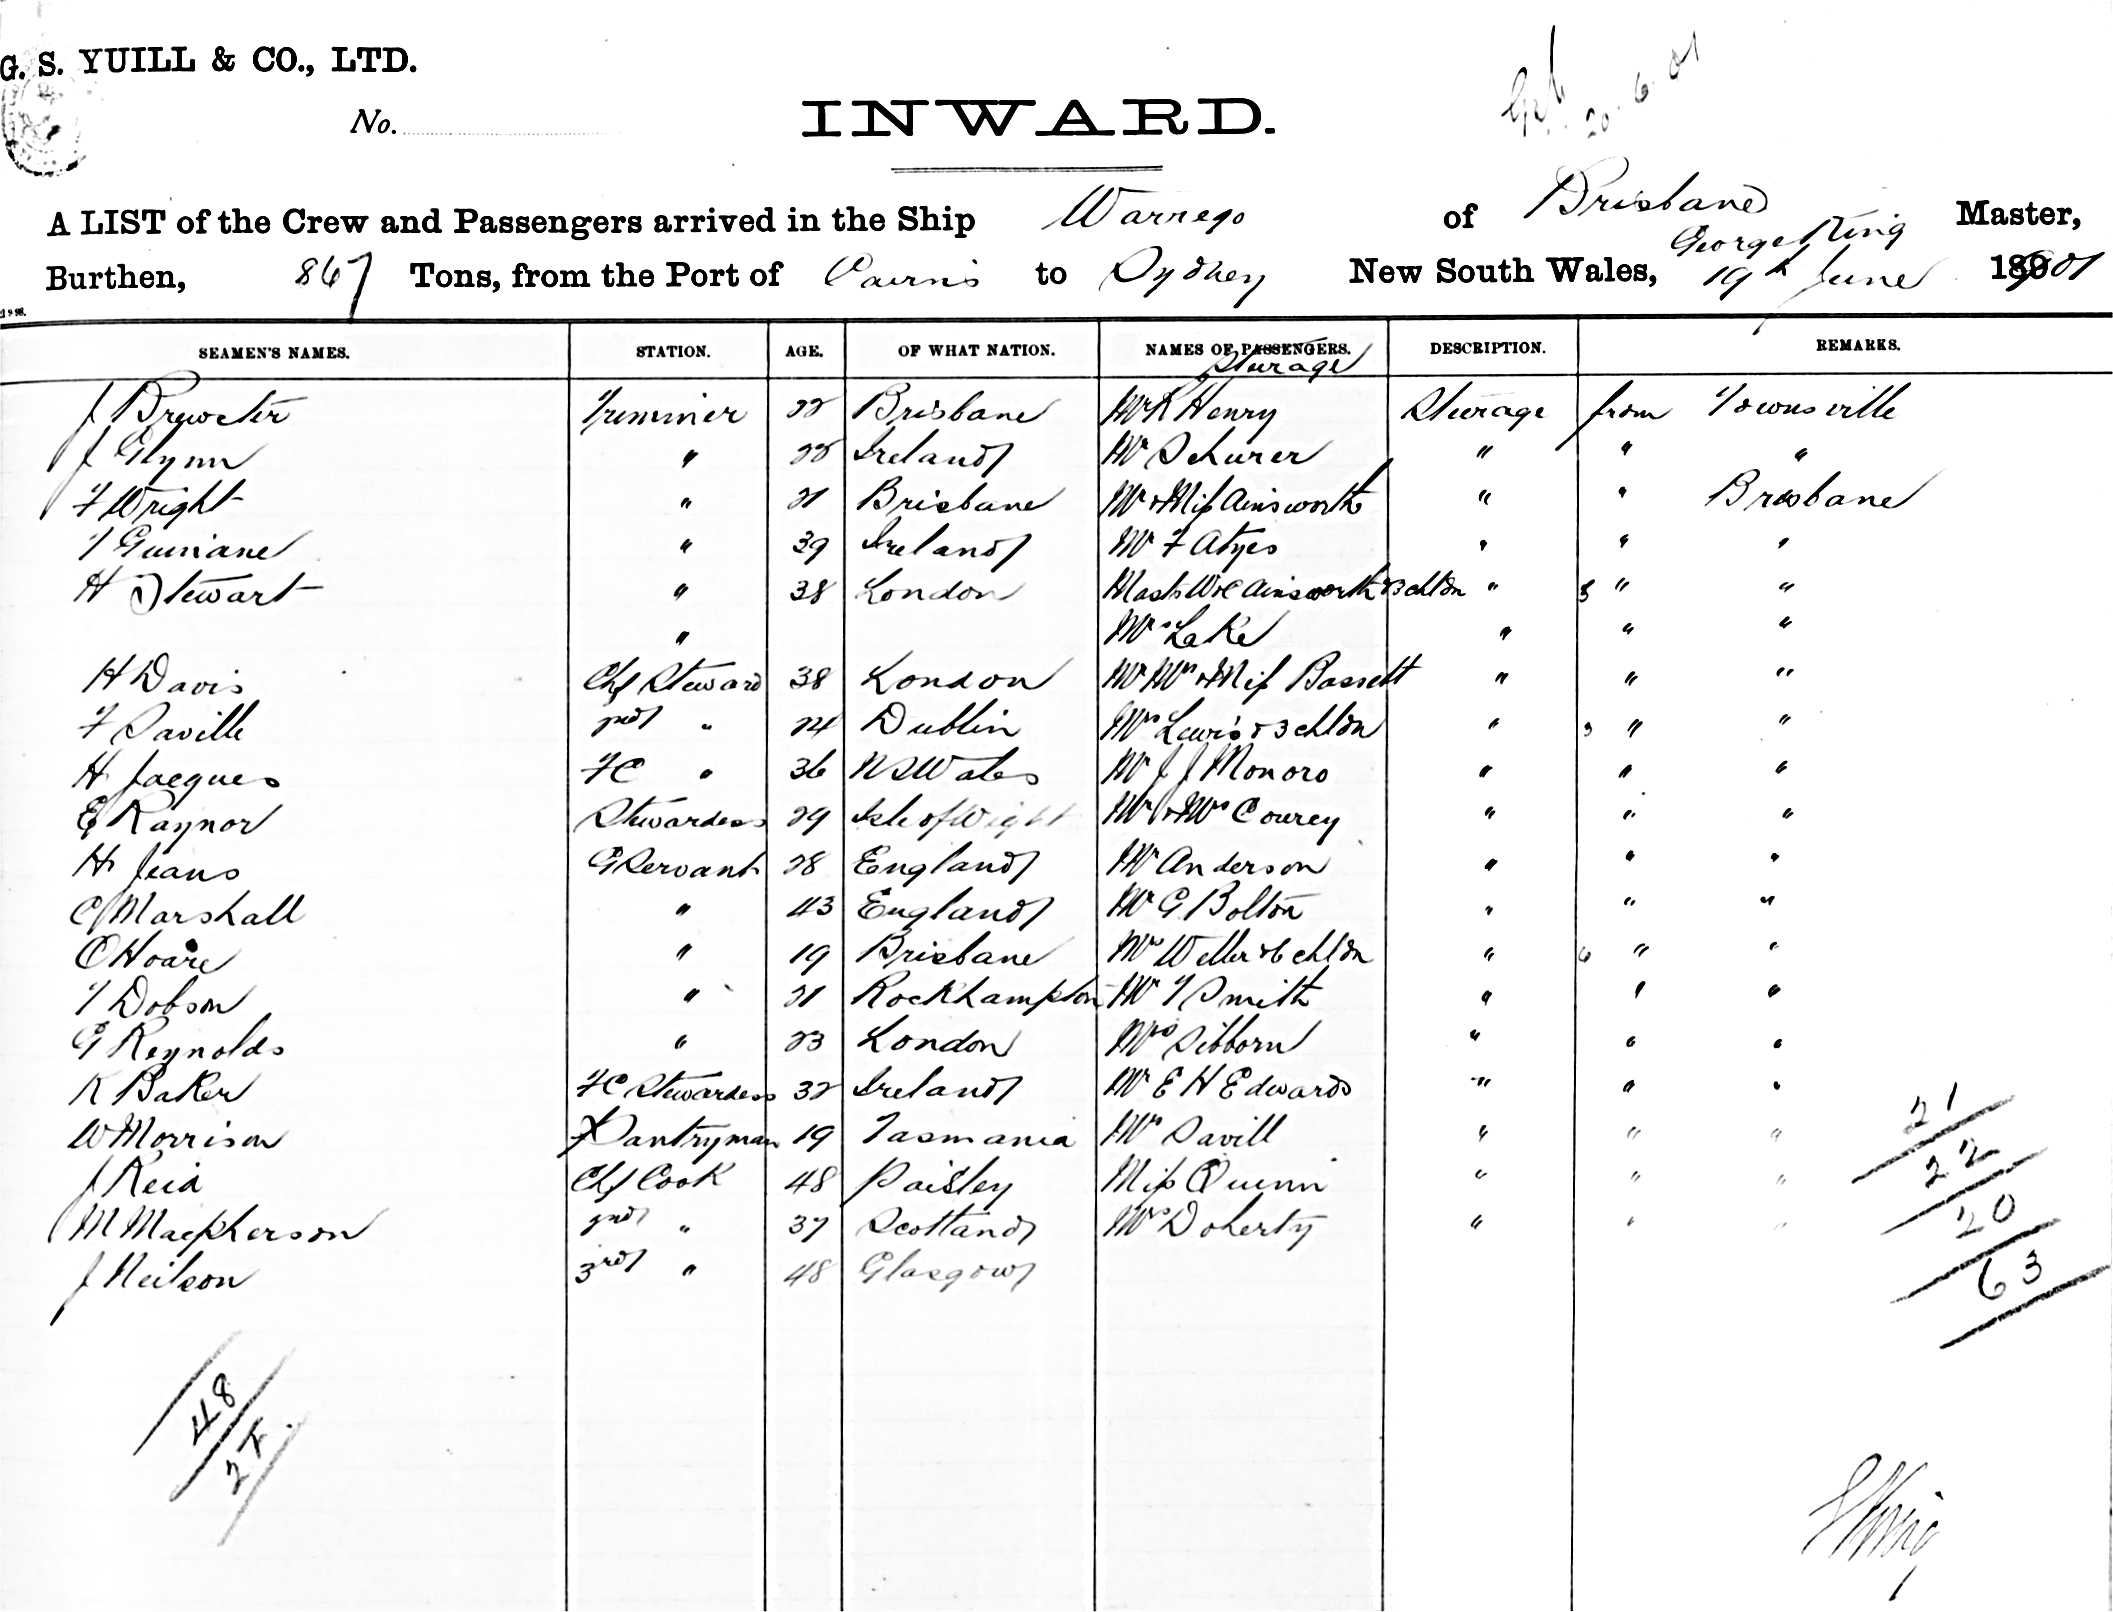 G. S. YUILL & CO., LTD.
No.
INWARD.
20.6.01
A LIST of the Crew and Passengers arrived in the Ship Warrego of Brisbane George King Master,
Burthen, 867 Tons, from the Port of Cairns to Sydney New South Wales, 19th June 1901
SEAMEN'S NAMES. STATION. AGE. OF WHAT NATION. NAMES OF PASSENGERS. DESCRIPTION. REMARKS.
Sturage
J Brewster Trimmer 22 Brisbane Mr R Henry Sturage from Townsville
J Glynn " 22 Ireland Mr Schurer " " "
F Wright " 21 Brisbane Mr & Miss Ainsworth " " Brisbane
T Guinane " 39 Ireland Mr F Atyes " " "
H Stewart " 38 London Mast W & C Ainsworth & 3 chldn " 3 " "
" Mrs Lake " " "
H Davis Chf Steward 38 London Mr Mrs & Miss Bassett " " "
F Saville 2nd " 24 Dublin Mrs Lewis & 3 chldn " 3 " "
H Jacques FC " 36 N S Wales Mr J J Monoro " " "
E Raynor Stewardess 29 Isle of Wight Mr & Mrs Courcy " " "
H Jeans G Servant 28 England Mr Anderson " " "
C Marshall " 43 England Mr G Bolton " " "
O Hoare " 19 Brisbane Mrs Weller & 6 chldn " 6 " "
T Dobson " 21 Rockhampton Mr T Smith " " "
G Reynolds " 23 London Mrs Sibborn " " "
K Baker FC Stewardess 32 Ireland Mr E H Edwards " " "
W Morrison Pantryman 19 Tasmania Mrs Savill " " "
J Reid Chf Cook 48 Paisley Miss Quinn " " "
M Macpherson 2nd " 37 Scotland Mrs Doherty " " "
J Neilson 3rd " 48 Glasgow
21
22
20
63
48
24
G King